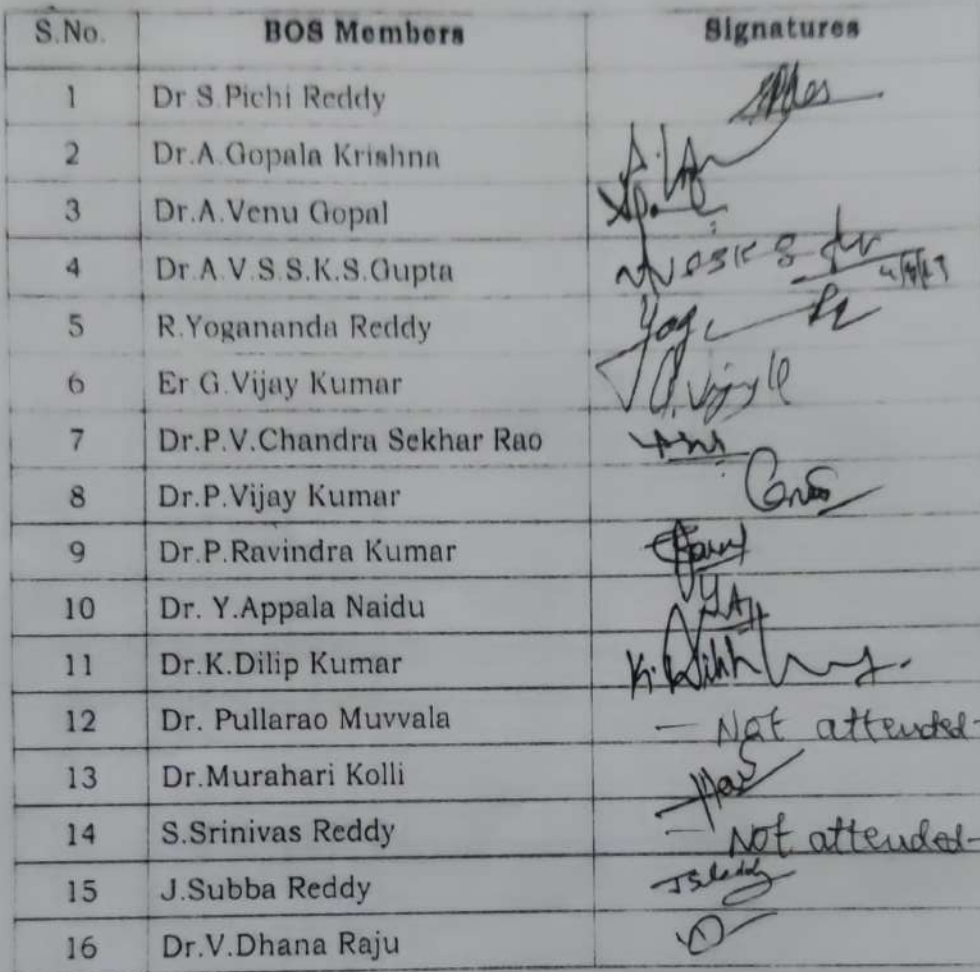 S.No. BOS Members Signatures
1 Dr S.Pichi Reddy
2 Dr.A.Gopala Krishna
3 Dr.A.Venu Gopal
4 Dr.A.V.S.S.K.S.Gupta
5 R.Yogananda Reddy
6 Er G.Vijay Kumar G.Vijay K
7 Dr.P.V.Chandra Sekhar Rao
8 Dr.P.Vijay Kumar
9 Dr.P.Ravindra Kumar
10 Dr. Y.Appala Naidu
11 Dr.K.Dilip Kumar
12 Dr. Pullarao Muvvala — Not attended-
13 Dr.Murahari Kolli
14 S.Srinivas Reddy — Not attended-
15 J.Subba Reddy JSReddy
16 Dr.V.Dhana Raju